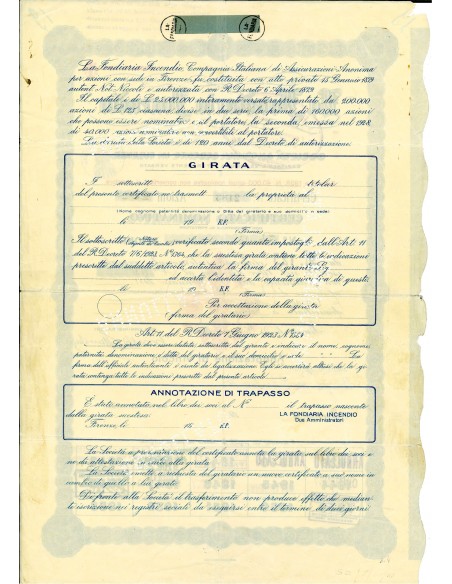 LA FONDIARIA
LA FONDIARIA
La Fondiaria Incendio Compagnia Italiana di Assicurazioni Anonima
per azioni con sede in Firenze fu costituita con atto privato 15 Gennaio 1879
autent. Not. Niccoli e autorizzata con R. Decreto 6 Aprile 1879.
Il capitale è di L. 25.000.000 interamente versato rappresentato da 200.000
azioni di L. 125 ciascuna divise in due serie, la prima di 160.000 azioni
che possono essere nominative e al portatore, la seconda, emessa nel 1928,
di 40.000 azioni nominative non convertibili al portatore.
La durata della Società è di 120 anni dal Decreto di autorizzazione.
GIRATA
I sottoscritt titolar
del presente certificato, ne trasmett la proprietà al
(Nome cognome paternità denominazione o Ditta del giratario e suo domicilio o sede)
li 19 E.F.
(Firma)
Il sottoscritto verificato secondo quanto imposto dall'Art. 11
del R. Decreto 7/6/1923 N° 1364, che la suestesa girata contiene tutte le indicazioni
prescritte dal suddetto articolo, autentica la firma del girante Sig
ed accerta l'identità e la capacità giuridica di questo
li 19 E.F.
(Firma)
Per accettazione della girata
(firma del giratario)
Art. 11 del R. Decreto 7 Giugno 1923 N° 1364
La girata deve essere datata sottoscritta dal girante e indicare il nome, cognome,
paternità denominazione o ditta del giratario e il suo domicilio o sede. La
firma dell'ufficiale autenticante è esente da legalizzazione. Egli deve accertarsi altresì che la gi-
rata contenga tutte le indicazioni prescritte dal presente articolo.
ANNOTAZIONE DI TRAPASSO
È stato annotato nel libro dei soci al N° il trapasso nascente
dalla girata suestesa.
LA FONDIARIA INCENDIO
Due Amministratori
Firenze, li 19 E.F.
La Società a presentazione del certificato annota la girata sul libro dei soci e
ne dà attestazione in calce alla girata.
La Società emette a richiesta del giratario un nuovo certificato a suo nome in
cambio di quello a lui girato.
Di fronte alla Società il trasferimento non produce effetto che median-
te iscrizione nei registri sociali da eseguirsi entro il termine di dieci giorni